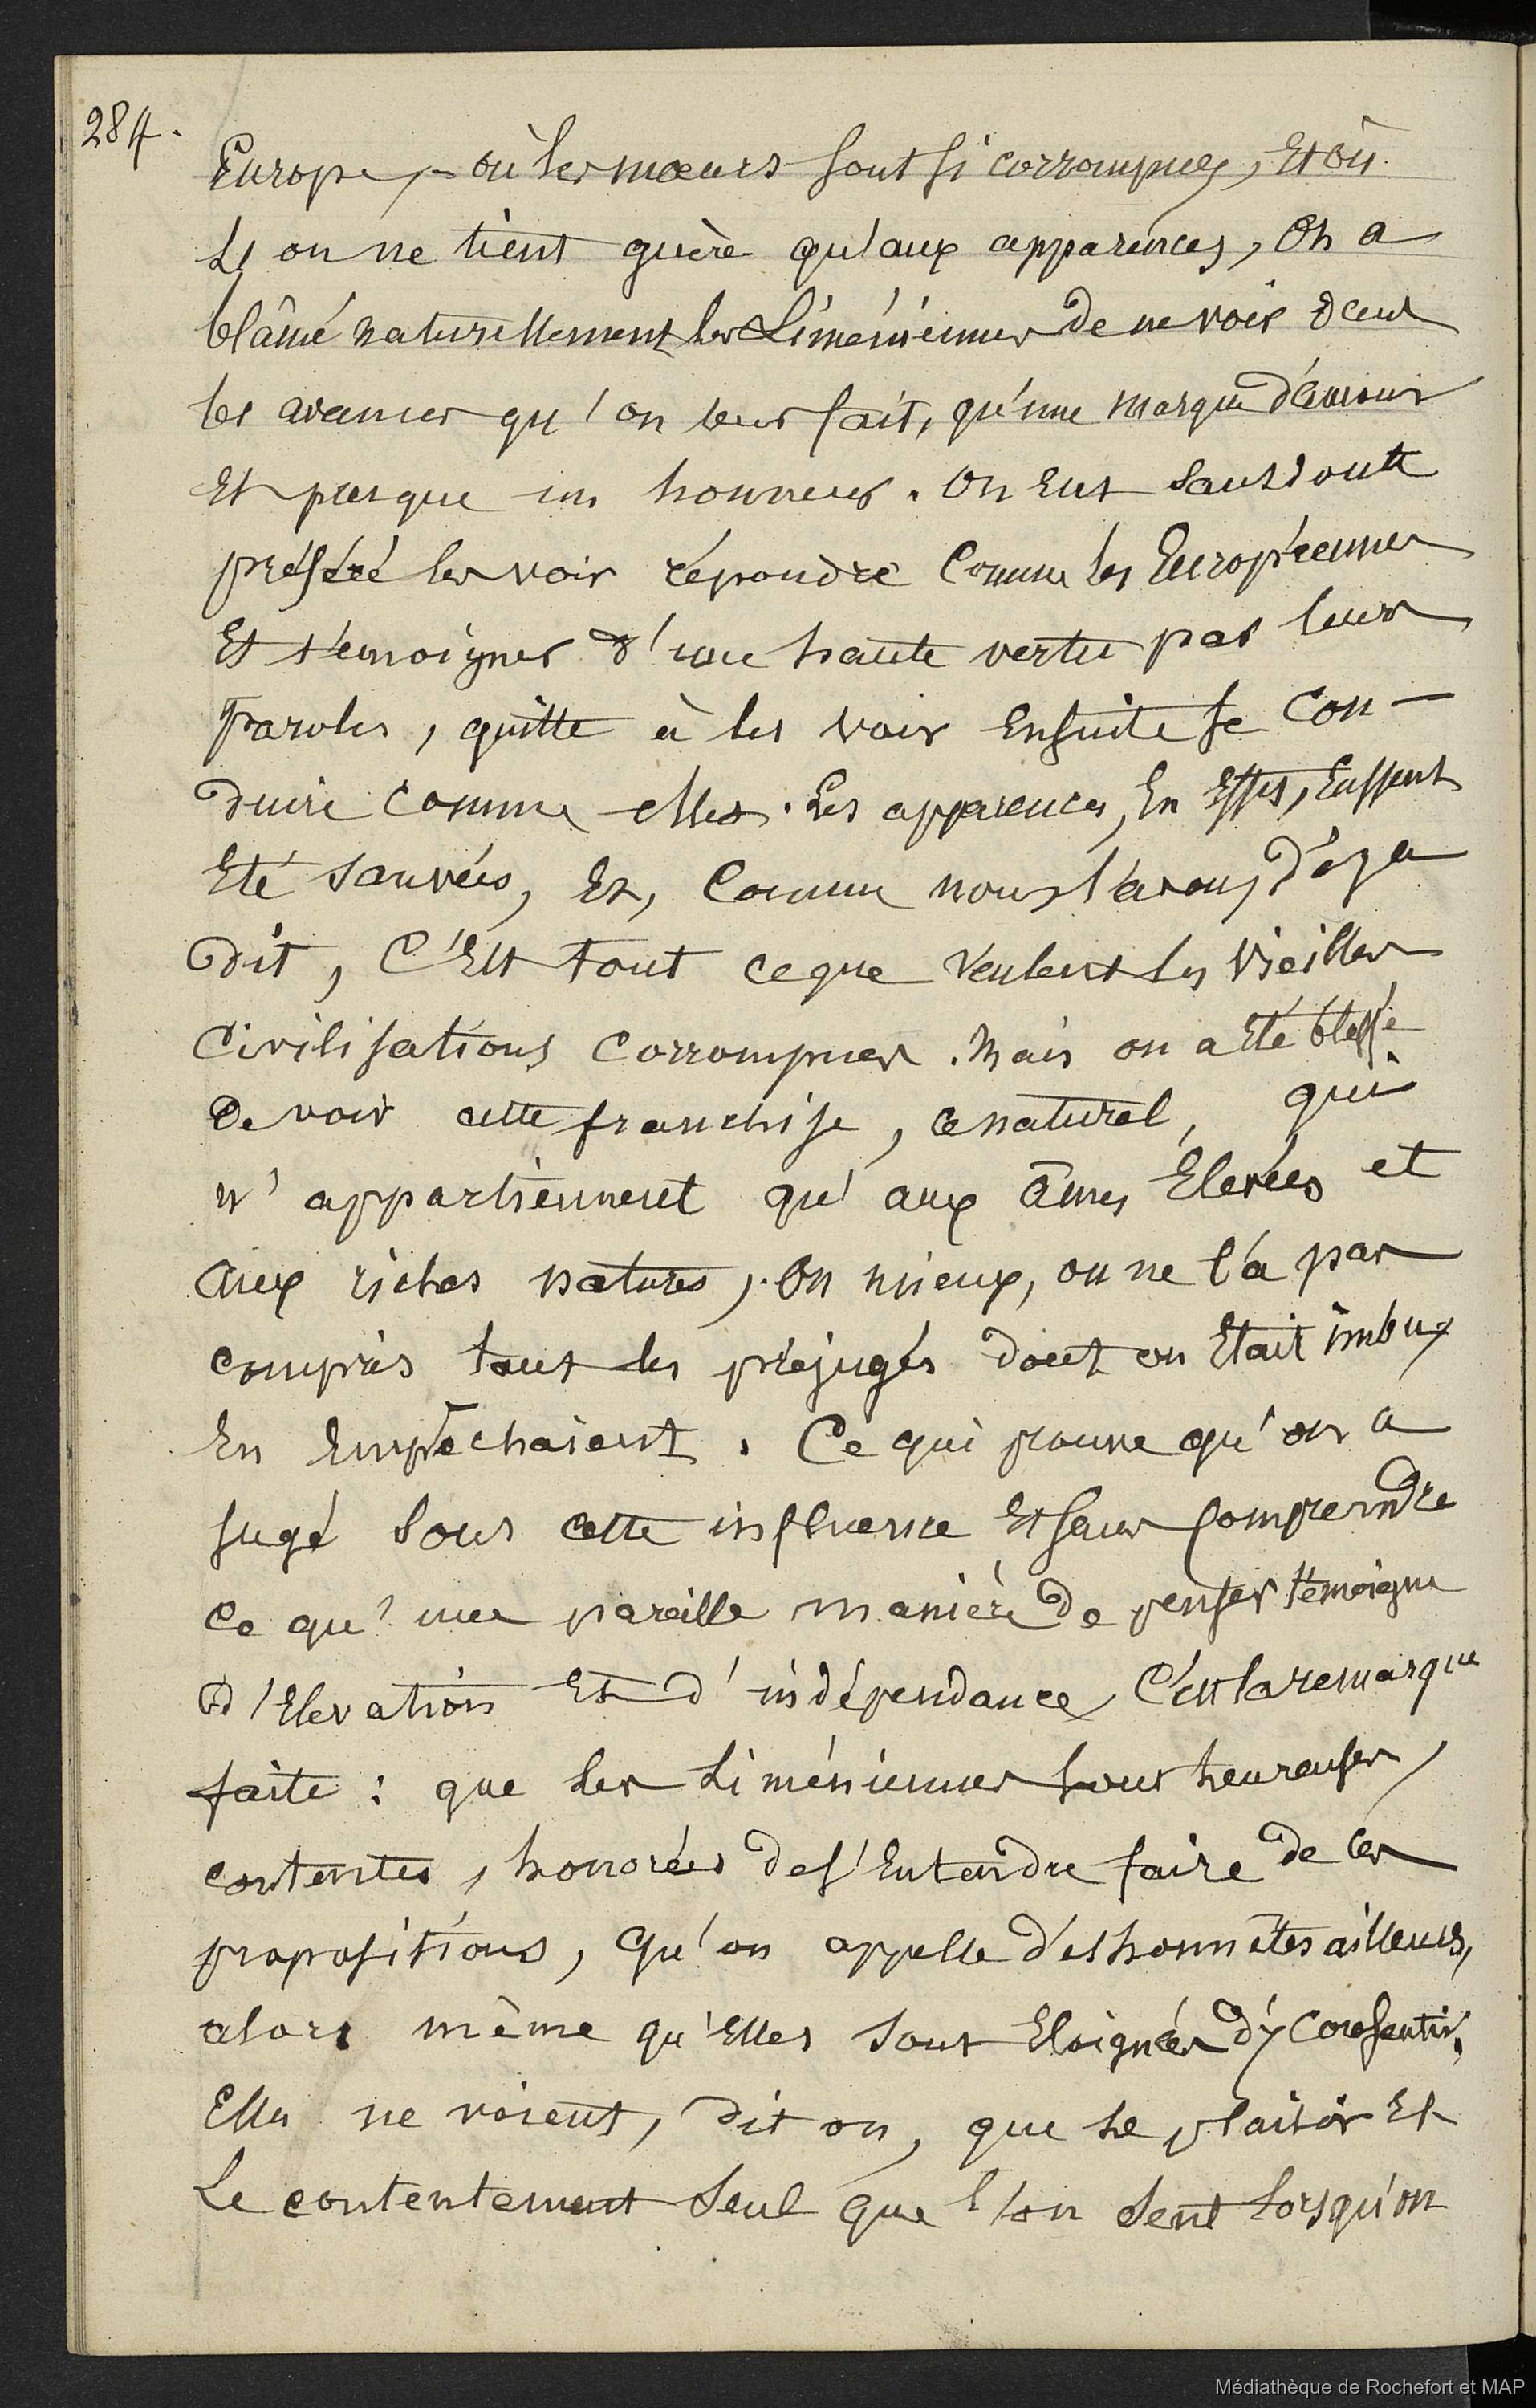 284.
Europe, – où les mœurs sont si corrompues, Et où
L'on ne tient guère qu'aux apparences, On a
blâmé naturellement les Liméniennes de ne voir dans
les avances qu'on leur fait, qu'une marque d'amour
Et presque un honneur. On Eut sans doute
préféré les voir répondre Comme les Européennes
Et témoigner d'une haute vertu par leurs
paroles, quitte à les voir Ensuite se Con-
duire comme elles. Les apparences, En Effet, Eussent
Eté sauvées, Et, Comme nous l'avons déja
dit, C'Est tout ce que veulent les Vieilles
Civilisations corrompues. Mais on a Eté blessé
De voir cette franchise, ce naturel, qui
n'appartiennent qu'aux âmes Elevées et
aux riches natures, Ou mieux, on ne l'a pas
compris tant les préjugés dont on Etait imbux
En Empêchaient. Ce qui prouve qu'on a
Jugé Sous cette influence Et sans Comprendre
Ce qu'une pareille manière De penser témoigne
d'Elevation Et d'indépendance, C'est la remarque
faite : que les Liméniennes sont heureuses,
contentes, honorées de s'Entendre faire de ces
propositions, qu'on appelle déshonnêtes ailleurs,
alors même qu'Elles sont Eloignées d'y Consentir.
Elles ne voient, dit on, que le plaisir Et
Le contentement seul que l'on sent Lorsqu'on
Médiathèque de Rochefort et MAP